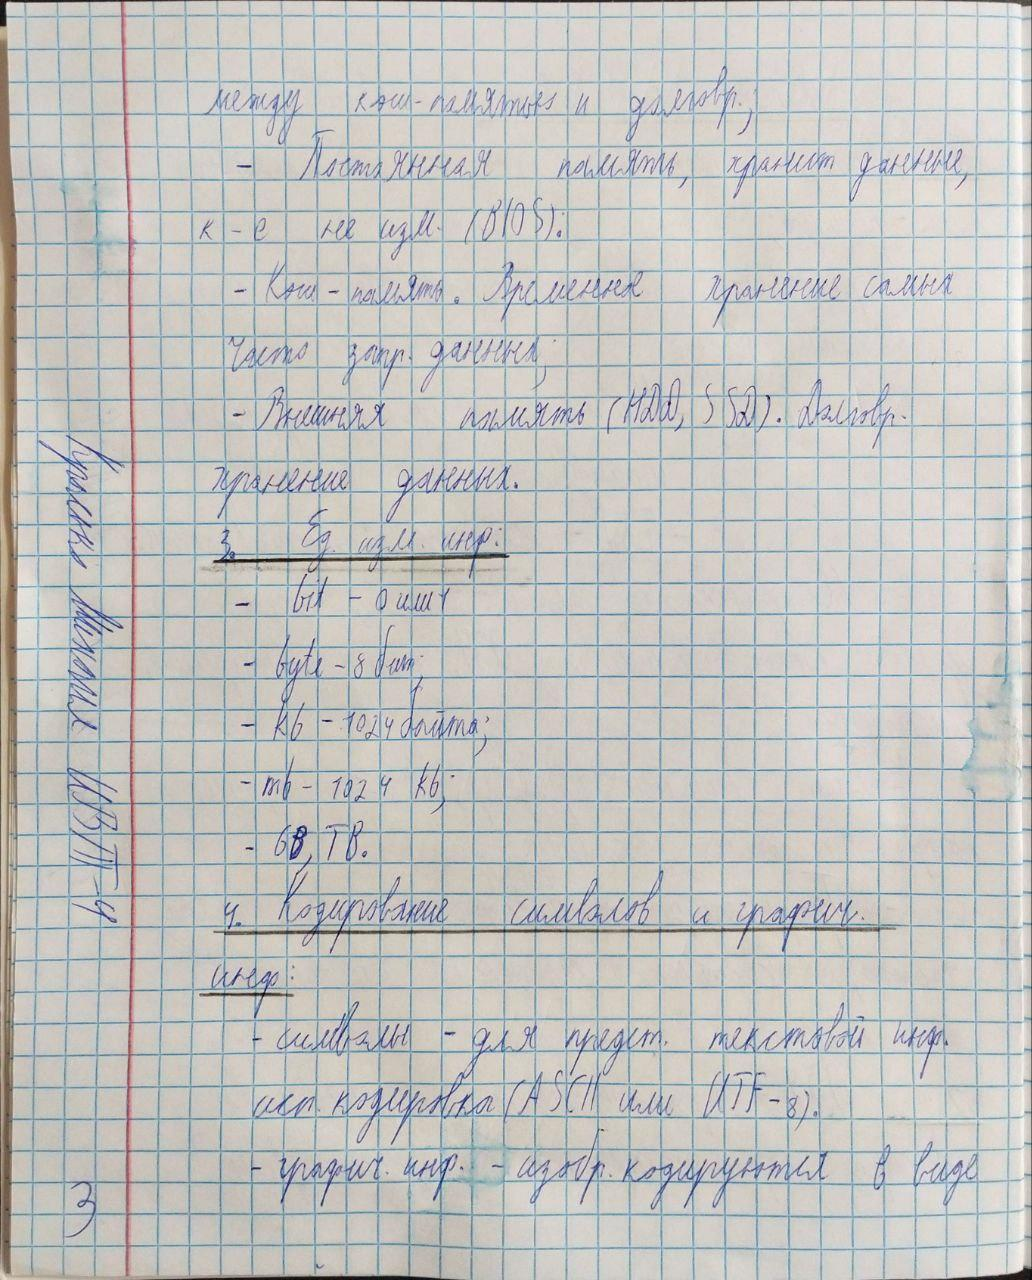 между кэш-памятью и долговр.;
- Постоянная память, хранит данные,
к-е не изм. (BIOS).
- Кэш-память. Временное хранение самых
часто запр. данных;
- Внешняя память (HDD, SSD). Долговр.
хранение данных.
3. Ед. изм. инф:
- bit - 0 или 1
- byte - 8 бит;
- kb - 1024 байта;
- mb - 1024 kb;
- GB, TB.
4. Кодирование символов и графич.
инф:
- символы - для предст. текстовой инф.
исп. кодировка (ASCII или UTF-8).
- графич. инф. - изобр. кодируются в виде
Михаил ИВТ-4
3